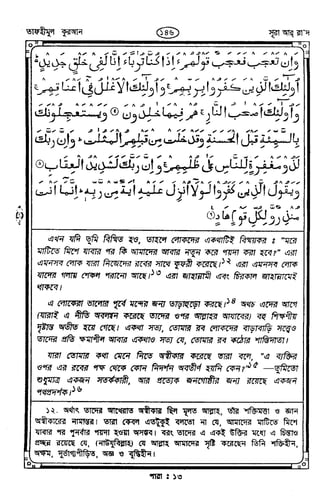 তাফহীমুল কুরআন
১৪৬
সূরা আর্ রা'দ
وَاِنْ تَعْجَبْ فَعَجَبٌ قَوْلُهُمْ ءَاِذَا كُنَّا تُرٰبًا ءَاِنَّا لَفِيْ خَلْقٍ جَدِيْدٍ
اُولٰٓئِكَ الَّذِيْنَ كَفَرُوْا بِرَبِّهِمْ ۚ وَاُولٰٓئِكَ الْاَغْلٰلُ فِيْٓ اَعْنَاقِهِمْ ۚ
وَاُولٰٓئِكَ اَصْحٰبُ النَّارِ ۚ هُمْ فِيْهَا خٰلِدُوْنَ ۝ وَيَسْتَعْجِلُوْنَكَ
بِالسَّيِّئَةِ قَبْلَ الْحَسَنَةِ وَقَدْ خَلَتْ مِنْ قَبْلِهِمُ الْمَثُلٰتُ ۗ وَاِنَّ رَبَّكَ
لَذُوْ مَغْفِرَةٍ لِّلنَّاسِ عَلٰى ظُلْمِهِمْ ۚ وَاِنَّ رَبَّكَ لَشَدِيْدُ الْعِقَابِ ۝
وَيَقُوْلُ الَّذِيْنَ كَفَرُوْا لَوْلَآ اُنْزِلَ عَلَيْهِ اٰيَةٌ مِّنْ رَّبِّهٖ ۗ اِنَّمَآ اَنْتَ
مُنْذِرٌ وَّلِكُلِّ قَوْمٍ هَادٍ ۝
এখন যদি তুমি বিস্মিত হও, তাহলে লোকদের একথাটিই বিস্ময়কর : "মরে
মাটিতে মিশে যাবার পর কি আমাদের আবার নতুন করে পয়দা করা হবে?" এরা
এমনসব লোক যারা নিজেদের রবের সাথে কুফরী করেছে।১২ এরা এমনসব লোক
যাদের গলায় শেকল পরানো আছে।১৩ এরা জাহান্নামী এবং চিরকাল জাহান্নামেই
থাকবে।
এ লোকেরা ভালোর পূর্বে মন্দের জন্য তাড়াহুড়ো করছে।১৪ অথচ এদের আগে
(যারাই এ নীতি অবলম্বন করেছে তাদের ওপর আল্লাহর আযাবের) বহু শিক্ষণীয়
দৃষ্টান্ত অতীত হয়ে গেছে। একথা সত্য, তোমার রব লোকদের বাড়াবাড়ি সত্ত্বেও
তাদের প্রতি ক্ষমাশীল আবার একথাও সত্য যে, তোমার রব কঠোর শাস্তিদাতা।
যারা তোমার কথা মেনে নিতে অস্বীকার করেছে তারা বলে, "এ ব্যক্তির
ওপর এর রবের পক্ষ থেকে কোন নিদর্শন অবতীর্ণ হয়নি কেন?"১৫—তুমিতো
শুধুমাত্র একজন সতর্ককারী, আর প্রত্যেক জনগোষ্ঠীর জন্য রয়েছে একজন
পথপ্রদর্শক।১৬
১২. অর্থাৎ তাদের আখেরাত অস্বীকার ছিল মূলত আল্লাহ, তাঁর শক্তিমত্তা ও জ্ঞান
অস্বীকারের নামান্তর। তারা কেবল এতটুকুই বলতো না যে, আমাদের মাটিতে মিশে
যাবার পর পুনর্বার পয়দা হওয়া অসম্ভব। বরং তাদের এ একই উক্তির মধ্যে এ চিন্তাও
প্রচ্ছন্ন রয়েছে যে, (নাউযুবিল্লাহ) যে আল্লাহ আমাদের সৃষ্টি করেছেন তিনি শক্তিহীন,
অক্ষম, দুর্ভাগ্যপীড়িত, অজ্ঞ ও বুদ্ধিহীন।
পারা : ১৩